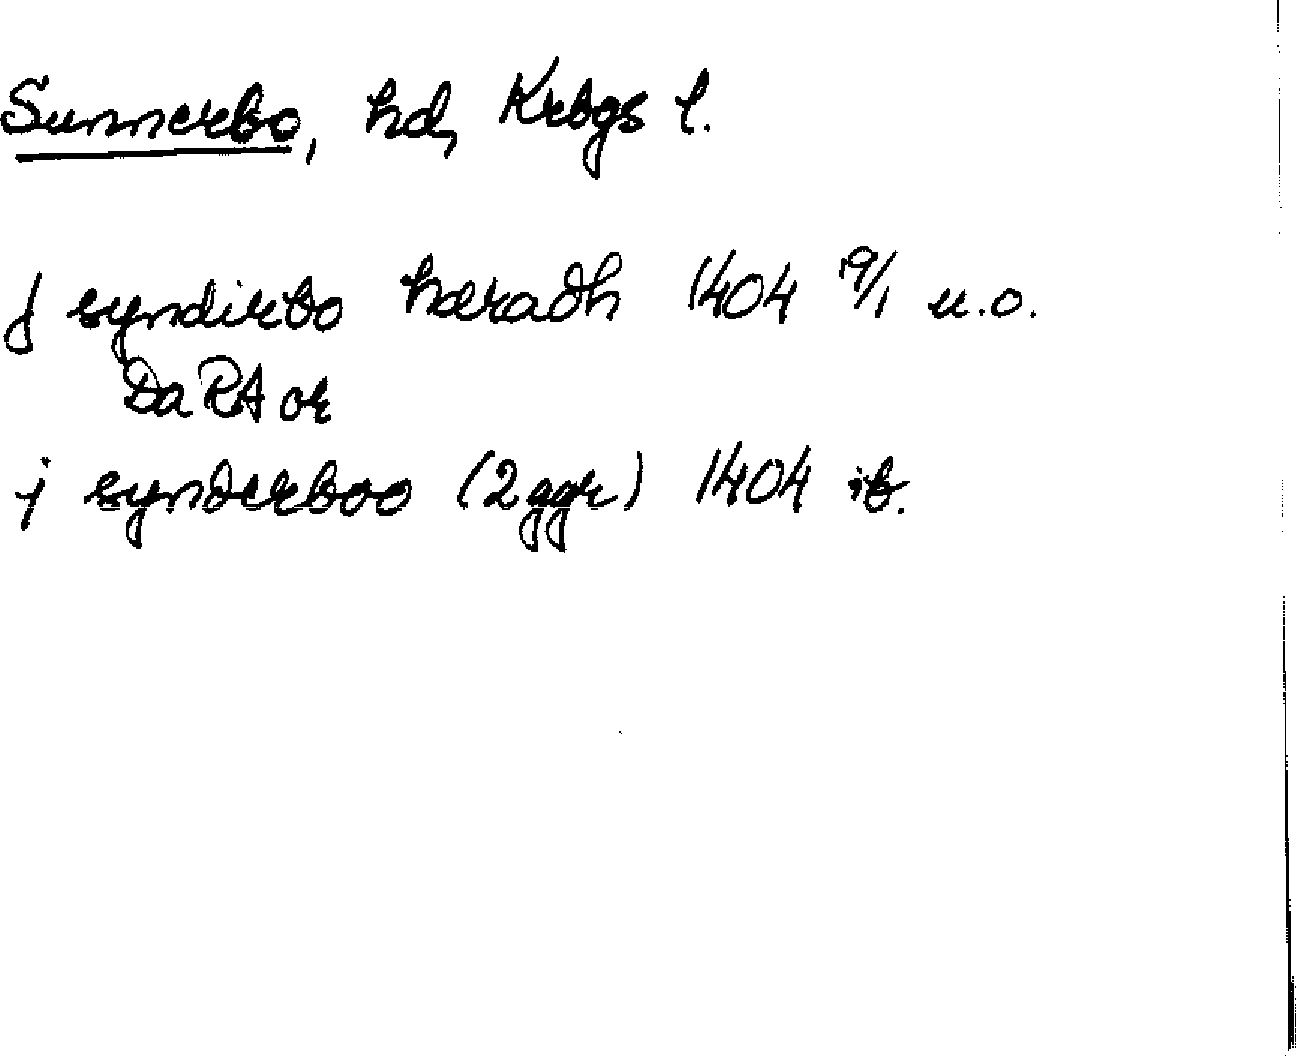 Sunnerbo, hd, Krbgs l.
J syndirbo hæradh 1404 19/1 u.o.
Da RA or
j synderboo (2 ggr) 1404 ib.